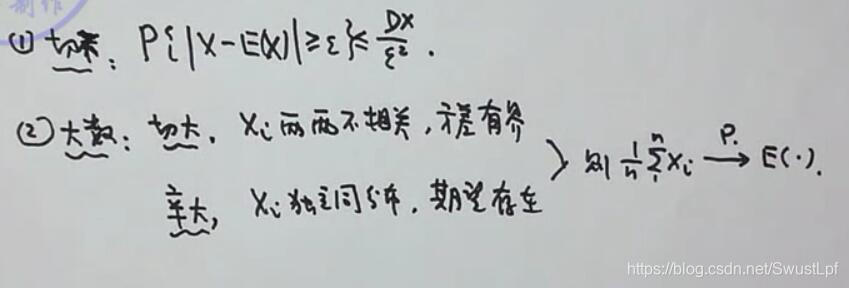 制作
① 切率: P{|X-E(X)|≥ε}≤DX/ε².
② 大数: 切大, Xi 两两不相关, 方差有界
辛大, Xi 独立同分布, 期望存在
} 则 1/n Σ₁ⁿ Xi —P.→ E(·).
https://blog.csdn.net/SwustLpf